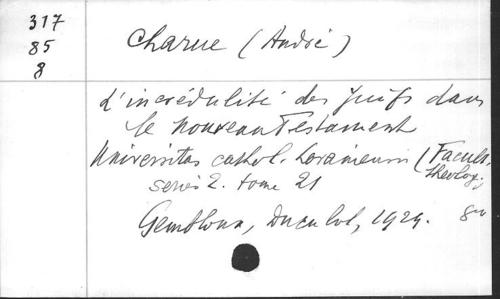 317
85
8
Charue (André)
L'incrédulité des juifs dans
le nouveau Testament
Universitas cathol. Lovaniensis (Facult.
theolog.)
series 2. tome 21
Gembloux, Duculot, 1929. 8vo